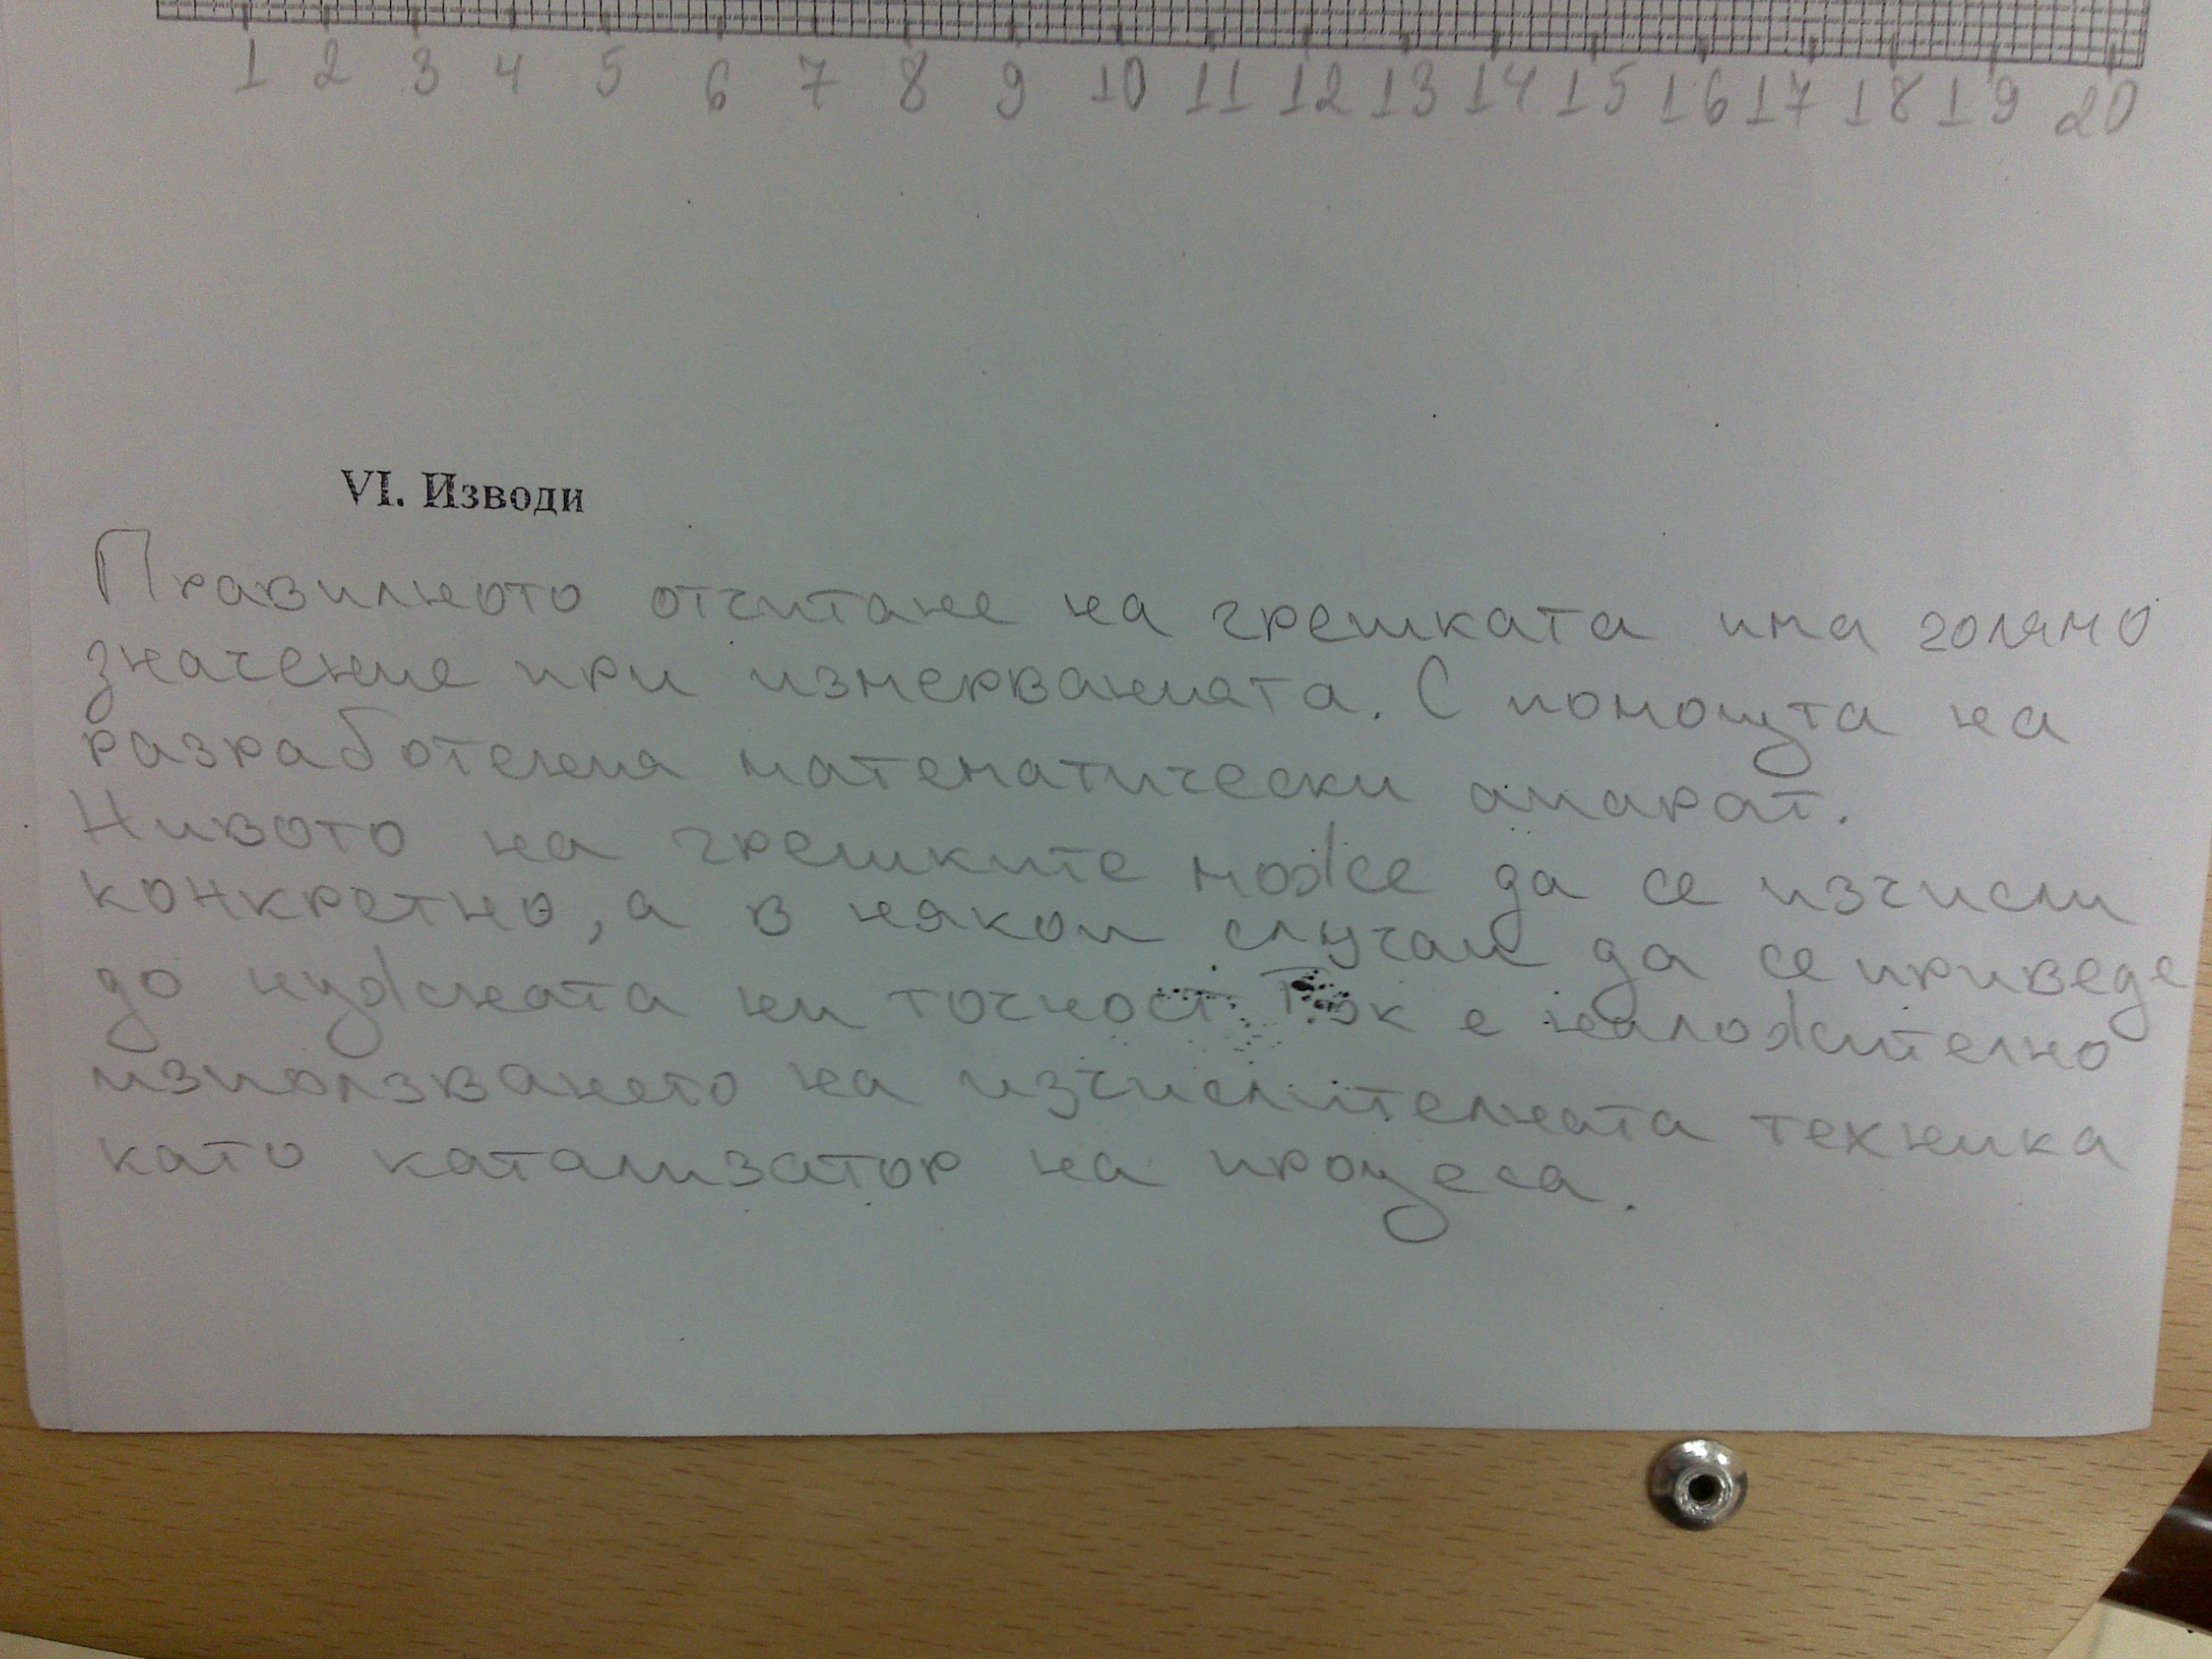 1 2 3 4 5 6 7 8 9 10 11 12 13 14 15 16 17 18 19 20
VI. Изводи
Правилното отчитане на грешката има голямо
значение при измерванията. С помощта на
разработения математически апарат.
Нивото на грешките може да се изчисли
конкретно, а в някои случаи да се приведе
до нужната ни точност. Пак е наложително
използването на изчислителната техника
като катализатор на процеса.